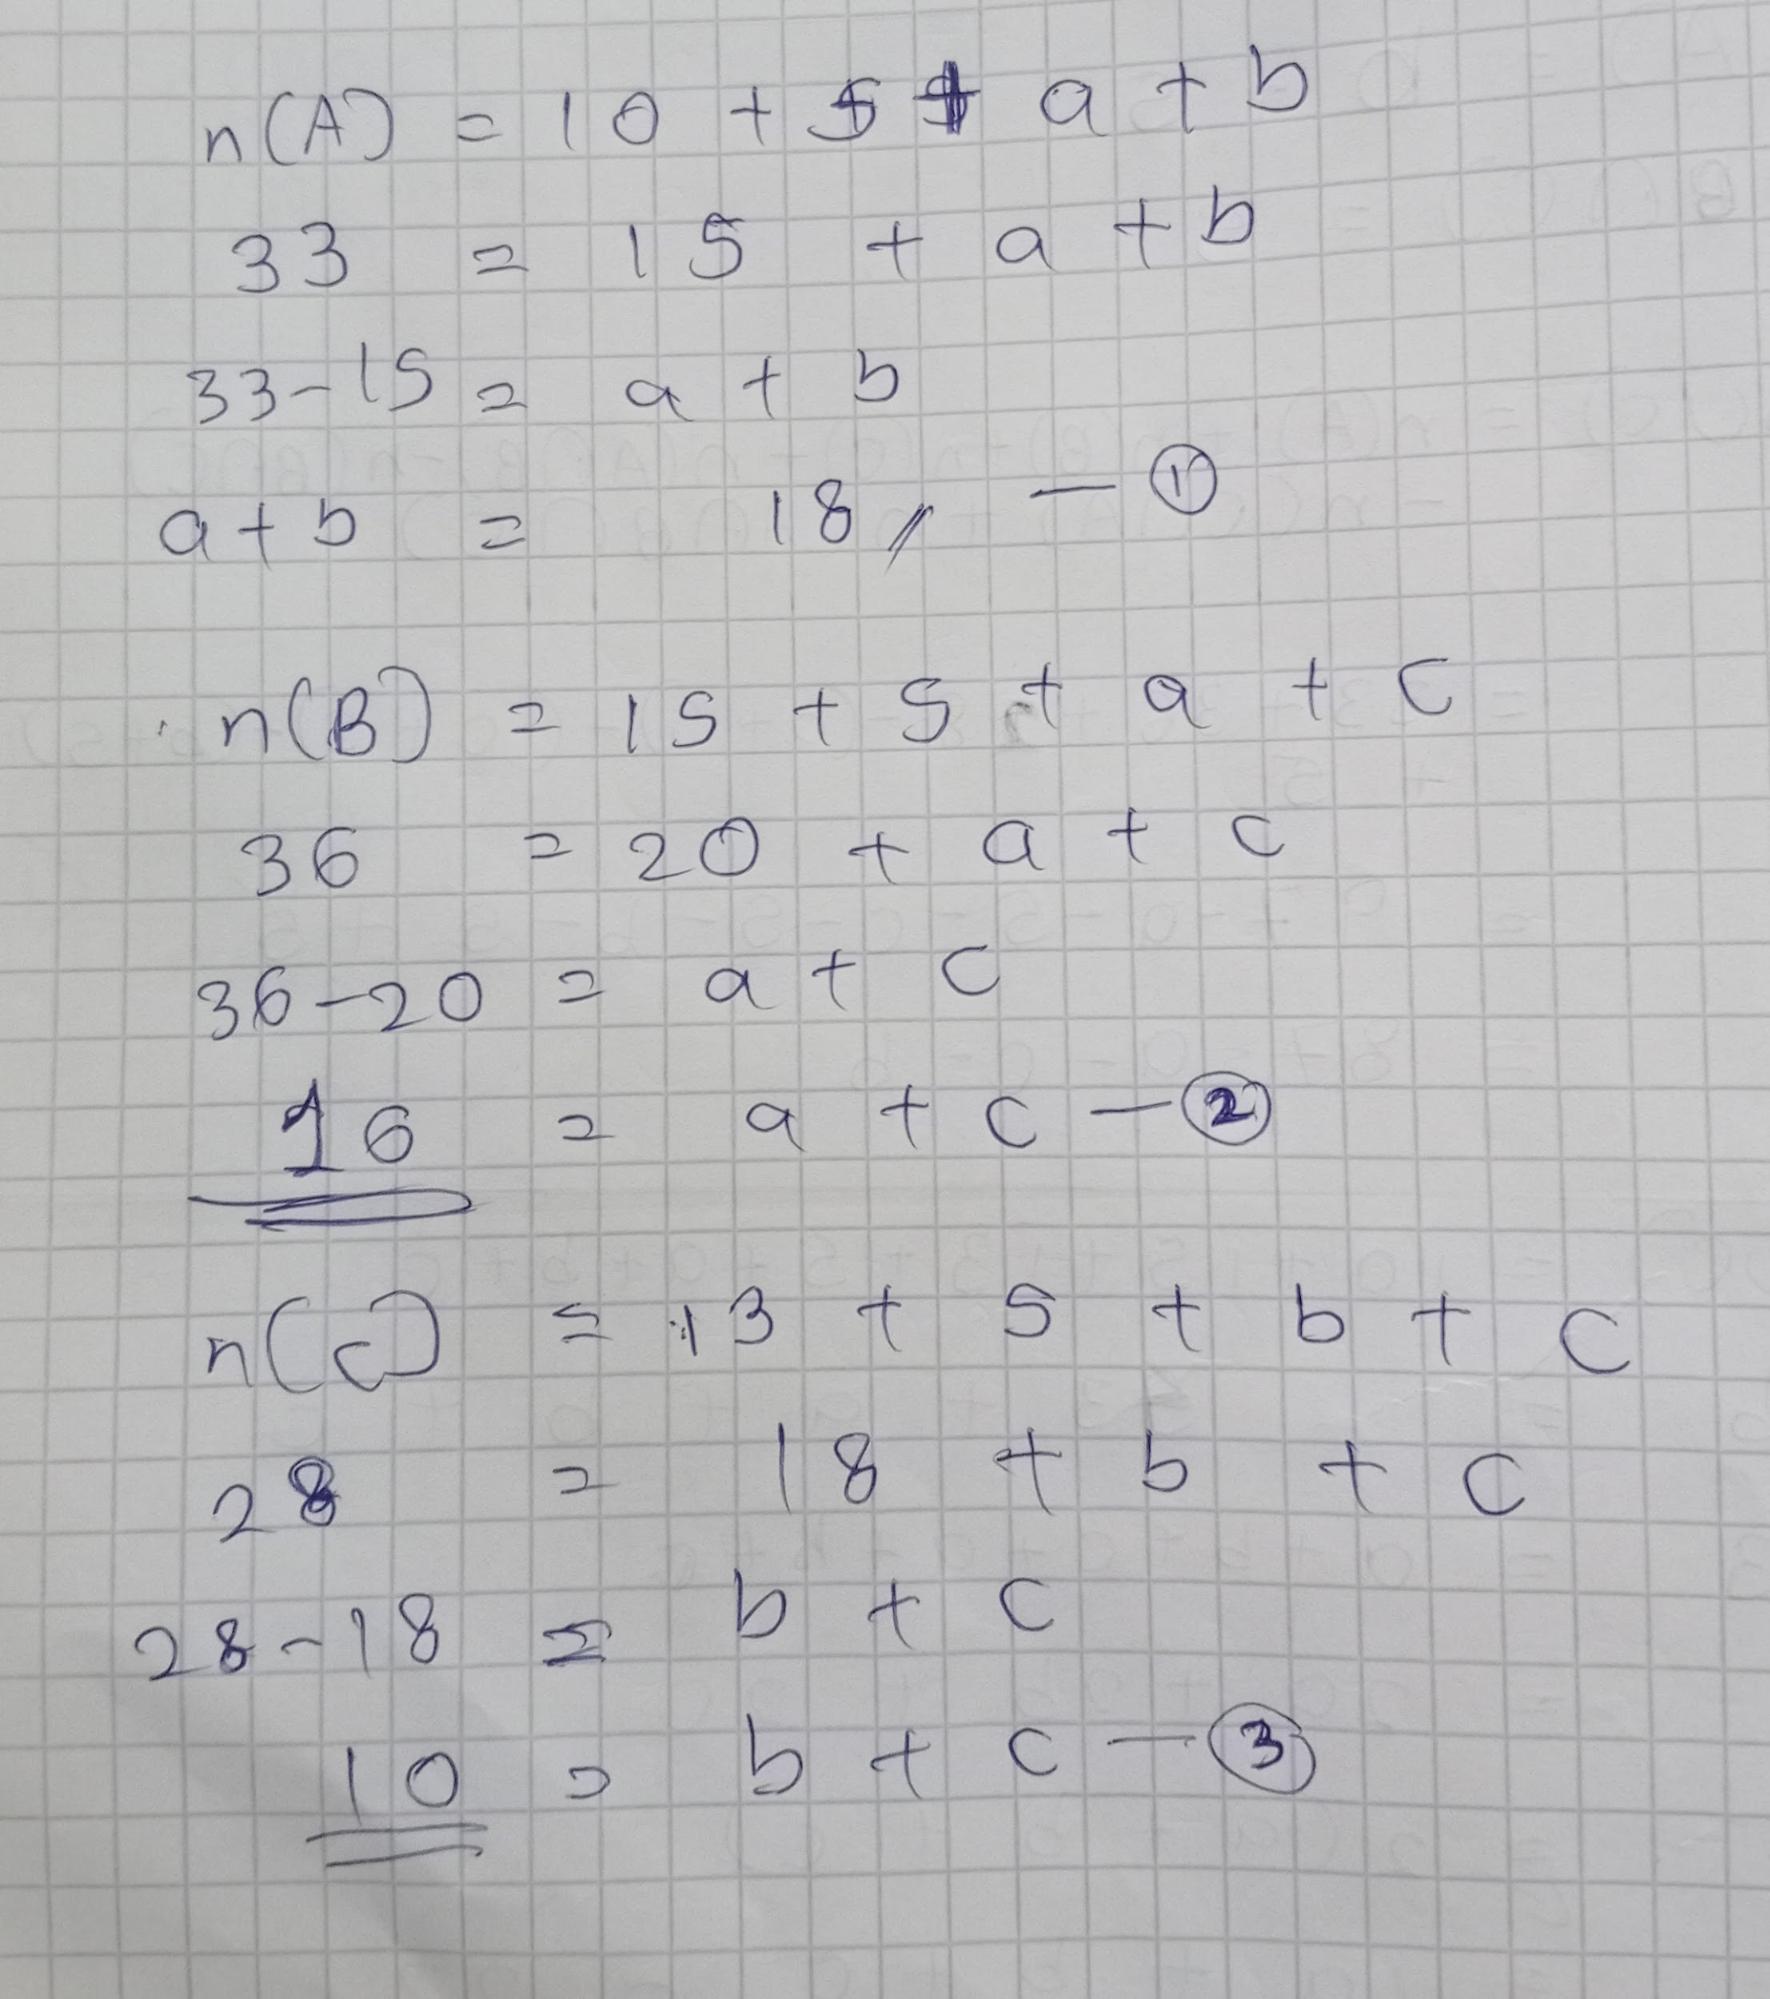 n(A) = 10 + 5 + a + b
33 = 15 + a + b
33-15 = a + b
a + b = 18 // — ①
n(B) = 15 + 5 + a + c
36 = 20 + a + c
36-20 = a + c
16 = a + c — ②
n(C) = 13 + 5 + b + c
28 = 18 + b + c
28-18 = b + c
10 = b + c — ③